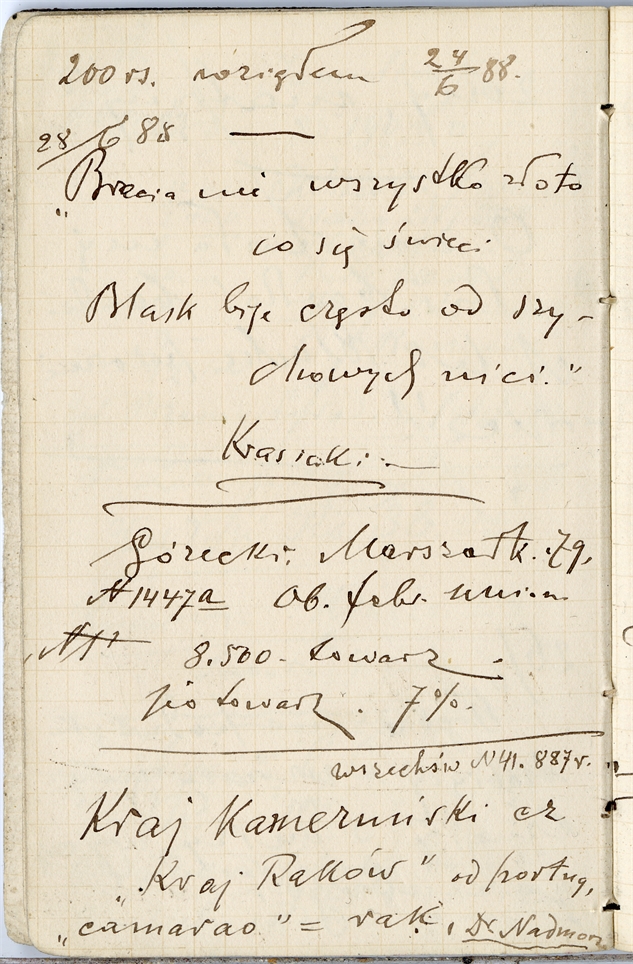 200 rs. 24/6 88.
28/6 88
"Bracia nie wszystko złoto
co się świeci
Blask bije często od szy-
chowych nici."
Krasicki.
Górecki. Marszałk. 79,
N 1447a Ob. febr.
8.500. towarz
towarz. 7%.
wszechśw N 41. 887 r.
Kraj Kameruński cz
"Kraj Raków" od portug,
"camarao" = rak, Dr Nadmorz